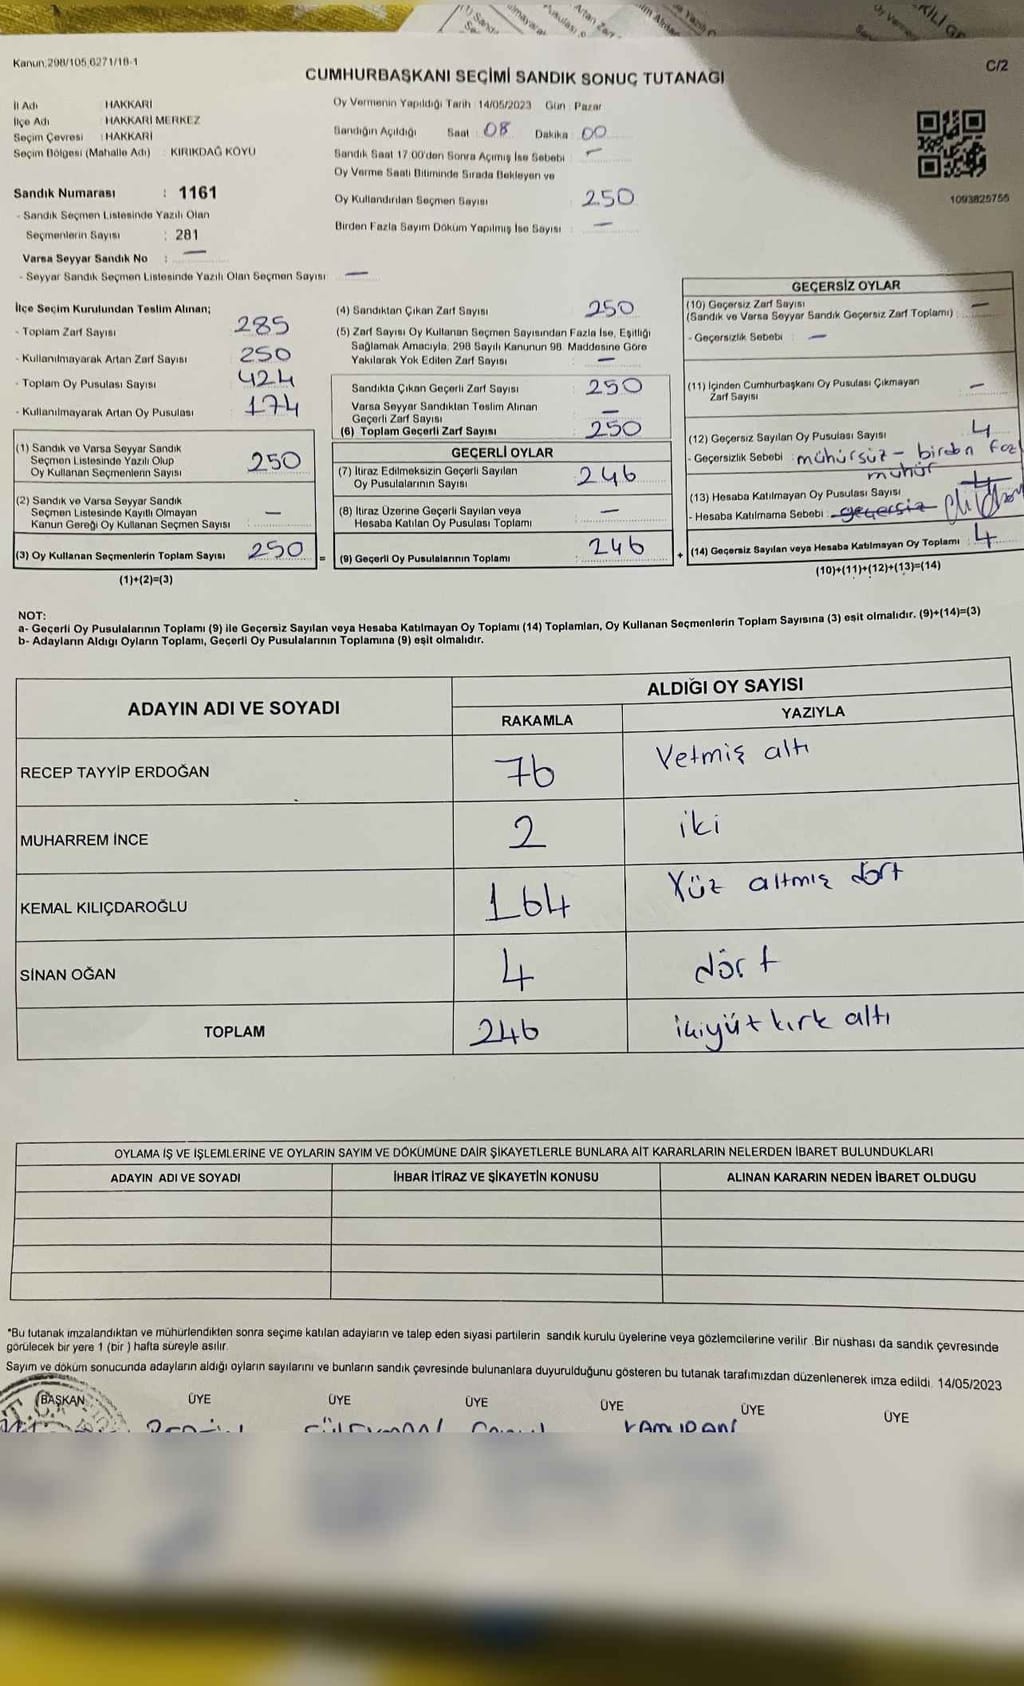 Kanun:298/105,6271/18-1
C/2
CUMHURBAŞKANI SEÇİMİ SANDIK SONUÇ TUTANAĞI
İl Adı HAKKARİ
İlçe Adı HAKKARİ MERKEZ
Seçim Çevresi : HAKKARİ
Seçim Bölgesi (Mahalle Adı) KIRIKDAĞ KÖYÜ
Sandık Numarası : 1161
- Sandık Seçmen Listesinde Yazılı Olan
Seçmenlerin Sayısı : 281
Varsa Seyyar Sandık No : —
- Seyyar Sandık Seçmen Listesinde Yazılı Olan Seçmen Sayısı —
Oy Vermenin Yapıldığı Tarih : 14/05/2023 Gün : Pazar
Sandığın Açıldığı Saat : 08 Dakika : 00
Sandık Saat 17:00'den Sonra Açılmış İse Sebebi —
Oy Verme Saati Bitiminde Sırada Bekleyen ve
Oy Kullandırılan Seçmen Sayısı 250
Birden Fazla Sayım Döküm Yapılmış İse Sayısı : —
1093825755
İlçe Seçim Kurulundan Teslim Alınan;
- Toplam Zarf Sayısı 285
- Kullanılmayarak Artan Zarf Sayısı 250
- Toplam Oy Pusulası Sayısı 424
- Kullanılmayarak Artan Oy Pusulası 174
(1) Sandık ve Varsa Seyyar Sandık
Seçmen Listesinde Yazılı Olup
Oy Kullanan Seçmenlerin Sayısı 250
(2) Sandık ve Varsa Seyyar Sandık
Seçmen Listesinde Kayıtlı Olmayan
Kanun Gereği Oy Kullanan Seçmen Sayısı —
(3) Oy Kullanan Seçmenlerin Toplam Sayısı 250 =
(1)+(2)=(3)
(4) Sandıktan Çıkan Zarf Sayısı 250
(5) Zarf Sayısı Oy Kullanan Seçmen Sayısından Fazla İse, Eşitliği
Sağlamak Amacıyla, 298 Sayılı Kanunun 98. Maddesine Göre
Yakılarak Yok Edilen Zarf Sayısı : —
Sandıkta Çıkan Geçerli Zarf Sayısı : 250
Varsa Seyyar Sandıktan Teslim Alınan
Geçerli Zarf Sayısı —
(6) Toplam Geçerli Zarf Sayısı 250
GEÇERLİ OYLAR
(7) İtiraz Edilmeksizin Geçerli Sayılan
Oy Pusulalarının Sayısı 246
(8) İtiraz Üzerine Geçerli Sayılan veya
Hesaba Katılan Oy Pusulası Toplamı —
(9) Geçerli Oy Pusulalarının Toplamı : 246 +
GEÇERSİZ OYLAR
(10) Geçersiz Zarf Sayısı —
(Sandık ve Varsa Seyyar Sandık Geçersiz Zarf Toplamı)
- Geçersizlik Sebebi : —
(11) İçinden Cumhurbaşkanı Oy Pusulası Çıkmayan
Zarf Sayısı —
(12) Geçersiz Sayılan Oy Pusulası Sayısı 4
- Geçersizlik Sebebi : mühürsüz - birden fazl
mühür
(13) Hesaba Katılmayan Oy Pusulası Sayısı
- Hesaba Katılmama Sebebi : geçersiz
(14) Geçersiz Sayılan veya Hesaba Katılmayan Oy Toplamı : 4
(10)+(11)+(12)+(13)=(14)
NOT:
a- Geçerli Oy Pusulalarının Toplamı (9) ile Geçersiz Sayılan veya Hesaba Katılmayan Oy Toplamı (14) Toplamları, Oy Kullanan Seçmenlerin Toplam Sayısına (3) eşit olmalıdır. (9)+(14)=(3)
b- Adayların Aldığı Oyların Toplamı, Geçerli Oy Pusulalarının Toplamına (9) eşit olmalıdır.
ADAYIN ADI VE SOYADI
ALDIĞI OY SAYISI
RAKAMLA YAZIYLA
RECEP TAYYİP ERDOĞAN 76 Yetmiş altı
MUHARREM İNCE 2 iki
KEMAL KILIÇDAROĞLU 164 Yüz altmış dört
SİNAN OĞAN 4 dört
TOPLAM 246 ikiyüz kırk altı
OYLAMA İŞ VE İŞLEMLERİNE VE OYLARIN SAYIM VE DÖKÜMÜNE DAİR ŞİKAYETLERLE BUNLARA AİT KARARLARIN NELERDEN İBARET BULUNDUKLARI
ADAYIN ADI VE SOYADI İHBAR İTİRAZ VE ŞİKAYETİN KONUSU ALINAN KARARIN NEDEN İBARET OLDUGU
*Bu tutanak imzalandıktan ve mühürlendikten sonra seçime katılan adayların ve talep eden siyasi partilerin sandık kurulu üyelerine veya gözlemcilerine verilir. Bir nüshası da sandık çevresinde
görülecek bir yere 1 (bir ) hafta süreyle asılır.
Sayım ve döküm sonucunda adayların aldığı oyların sayılarını ve bunların sandık çevresinde bulunanlara duyurulduğunu gösteren bu tutanak tarafımızdan düzenlenerek imza edildi. 14/05/2023
BAŞKAN ÜYE ÜYE ÜYE ÜYE ÜYE ÜYE